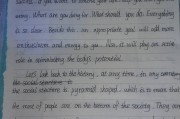 wrong. What are you living for. What should you do. Everything
is so clear. Beside this an appropriate goal will add more
enthusiasm and energy to you. Now, it will play an active
role in the body's potential.
Let's look back to the history, at any time, in any company
the social structure is pyramid shaped, which is to mean that
the most of people are on the bottom of the society. They can